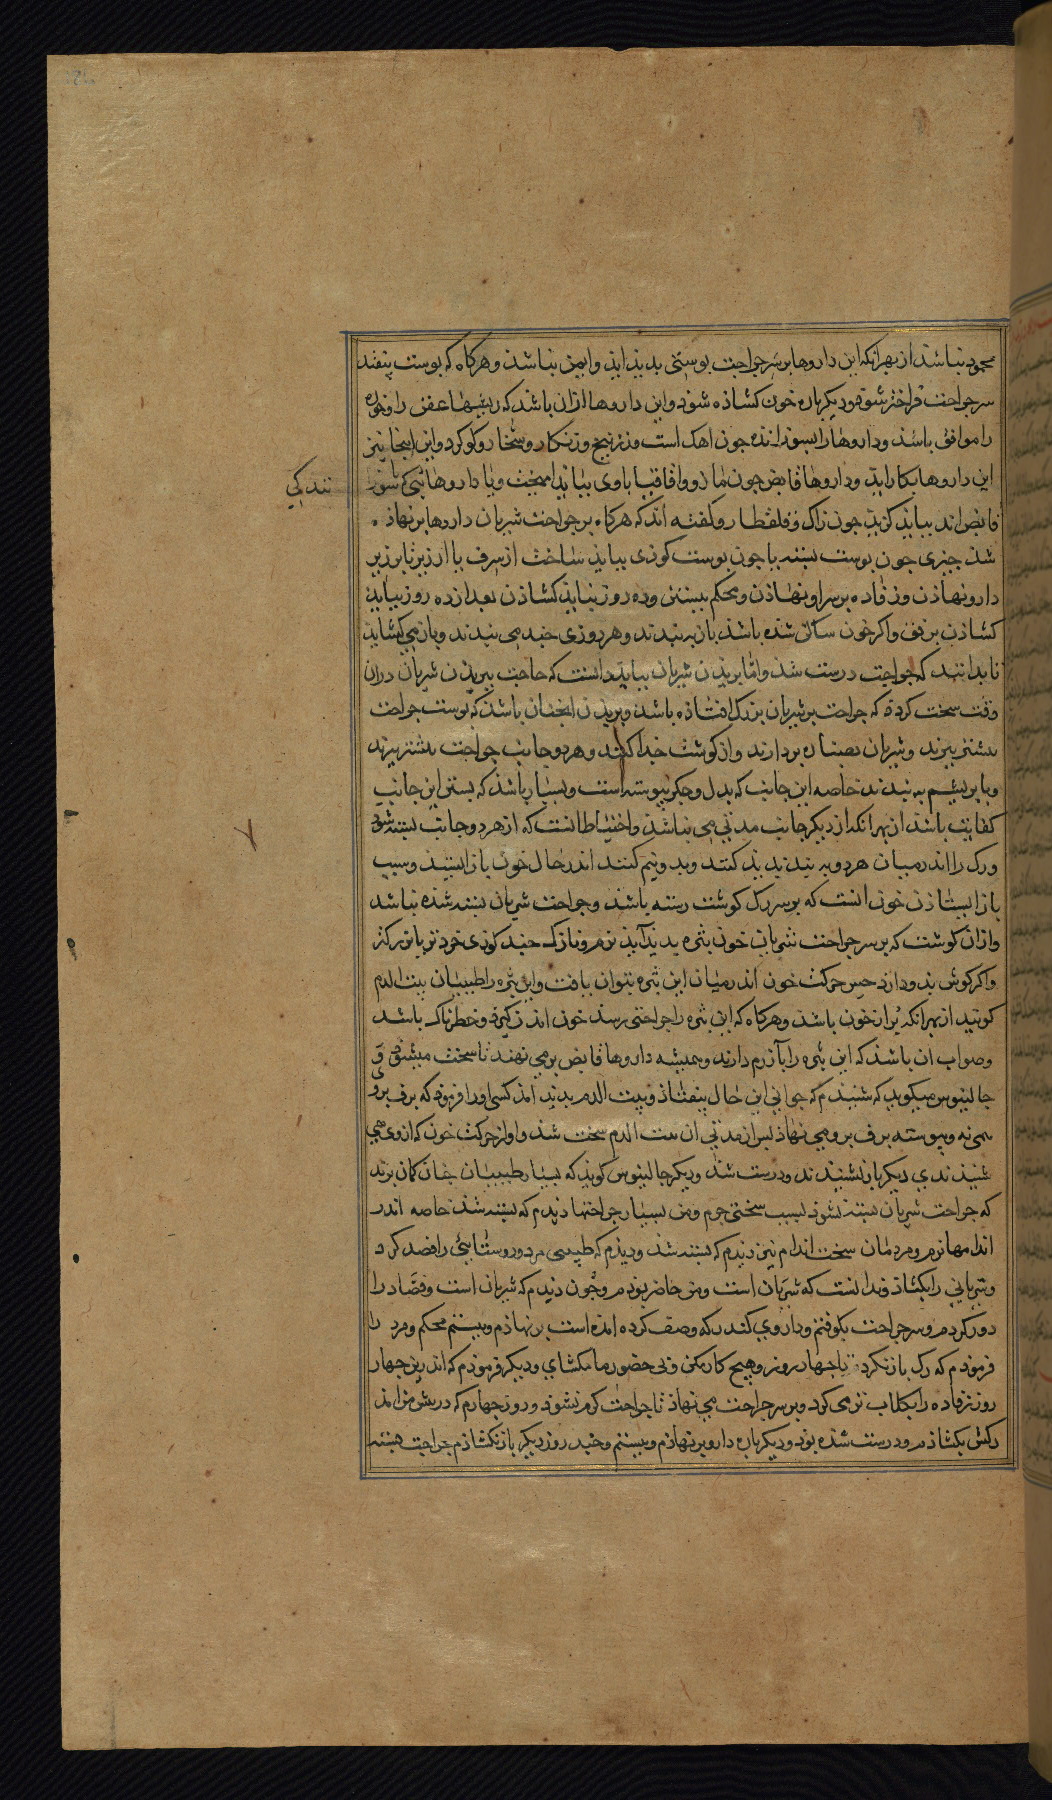 محمود نباشد از بهر انکه این داروها بر سر جراحت پوستی بدیذ اید و ایمن نباشد و هرکاه که پوست بیفتد
سر جراحت فراختر شود و دیکر باره خون کشاده شود و این داروها از ان باشد که ریشهاء عفن را و خوره
را موافق باشد و داروهاء را بسوزاننده چون اهک است و زرنیخ و زنکار و شخار و کوکرد و این اینجا نیز
این داروها بکار اید و داروهاء قابض چون مازو و اقاقیا با وی بباید امیخت و یا داروهائی که شور
تند کی
قابض اند بباید کزید چون زاک و قلقطار و کفته اند که هرکاه بر جراحت شریان داروها بر نهاذه
شد چیزی چون پوست پسته یا چون پوست کوزی بباید ساخت از سرف یا ارزیز تا بر زبر
دارو نهاذن و رفاده بر سر او نهاذن و محکم ببستن و ده روز نباید کشاذن بعد از ده روز بباید
کشاذن برفق و اکر خون ساکن شده باشد باز بر بندند و هر روزی چند می بندند و باز می کشاید
تا بدانند که جراحت درست شد و اما بریدن شریان بباید دانست که حاجت ببریدن شریان در ان
وقت سخت کردد که جراحت بر شریان بزرک افتاذه باشد و بریدن انچنان باشد که پوست جراحت
بیشتر ببرند و شریان بصناره بردارند و از کوشت جدا کنند و هر دو جانب جراحت بیشتر ببرند
و بابریشم به بندند خاصه این جانب که بدل و جکر پیوسته است و بسیار باشد که بستن این جانب
کفایت باشد از بهر انکه از دیکر جانب مددی می نباشد و احتیاط انست که از هر دو جانب بسته شود
و رک را اندر میان هر دو به بند بدید کنند و بدو نیم کنند اندر حال خون باز ایستد و سبب
باز ایستاذن خون انست که بر سر رک کوشت رسته باشد و جراحت شریان بسته شده نباشد
و از ان کوشت که بر سر جراحت شریان خون بثره بدید آید نرم و نازک چند کوزی خردتر یا بزرکتر
و اکر کوش بدو دارد حس حرکت خون اندر میان این بثره بتوان یافت و این بثره را طبیبان بیت الدم
کویند از بهر انکه پر از خون باشد و هرکاه که این بثره را جراحتی رسد خون اندر کیرد و خطرناک باشد
و صواب ان باشد که این بثره را بآزرم دارند و همیشه داروها قابض بر می نهند تا سخت میشود و
جالینوس میکوید که شنیدم که جوانی این حال بیفتاد و بیت الدم بدید امد کسی او را فرمود که برف برو
می نه و پیوسته برف برو می نهاذ پس از مدتی ان بیت الدم سخت شد و اواز حرکت خون که از وی می
شنیدندی دیکر باز نشنیدند و درست شد و دیکر جالینوس کوید که بسیار طبیبان چنان کمان برند
که جراحت شریان بسته نشود بسبب سختی جرم و من بسیار جراحتها دیدم که بسته شد خاصه اندر
اندامها نرم و مردمان سخت اندام نیز دیدم که بسته شد و دیدم که طبیبی مردی روستائی را فصد کرد
و شریانی را بکشاد و ندانست که شریان است و من حاضر بودم و چون دیدم که شریان است و فصاد را
دور کردم و سر جراحت بکوفتم و داروی کندر که وصف کرده امده است بر نهاذم و ببستم محکم و مرد را
فرمودم که رک باز نکرد تا جهار روز و هیچ کار مکن و بی حضور ما مکشای و دیکر فرمودم که اندر این چهار
روز رفاده را بکلاب تر می کرد و بر سر جراحت می نهاذ تا جراحت کرم نشود و روز چهارم که در پیش من امد
رکش بکشاذم و درست شده بود و دیکر باره دارو بر نهاذم و ببستم و چند روز دیکر باز نکشاذم جراحت بسته